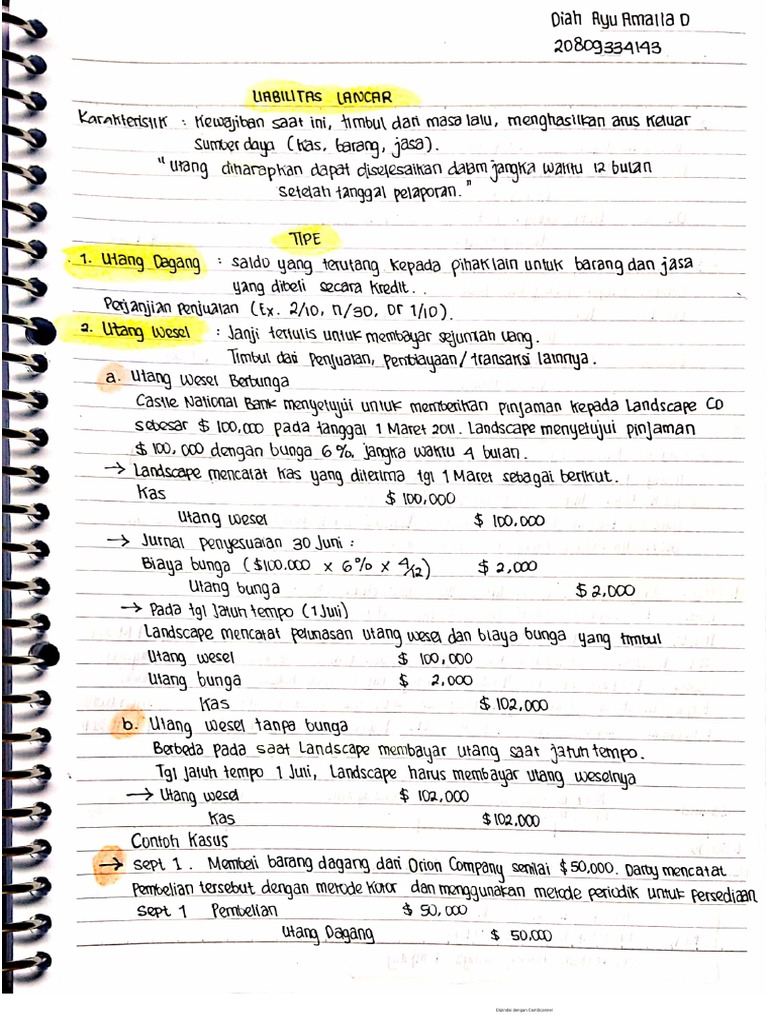 Diah Ayu Amalia D
20809334143
LIABILITAS LANCAR
Karakteristik : Kewajiban saat ini, timbul dari masa lalu, menghasilkan arus keluar
sumber daya (kas, barang, jasa).
"Utang diharapkan dapat diselesaikan dalam jangka waktu 12 bulan
setelah tanggal pelaporan."
TIPE
1. Utang Dagang : saldo yang terutang kepada pihak lain untuk barang dan jasa
yang dibeli secara kredit.
Perjanjian penjualan (Ex. 2/10, n/30, or 1/10).
2. Utang Wesel : Janji tertulis untuk membayar sejumlah uang.
Timbul dari Penjualan, Pembiayaan / transaksi lainnya.
a. Utang Wesel Berbunga
Castle National Bank menyetujui untuk memberikan pinjaman kepada Landscape CO
sebesar $ 100,000 pada tanggal 1 Maret 2011. Landscape menyetujui pinjaman
$ 100,000 dengan bunga 6%, jangka waktu 4 bulan.
→ Landscape mencatat kas yang diterima tgl 1 Maret sebagai berikut.
Kas $ 100,000
Utang wesel $ 100,000
→ Jurnal penyesuaian 30 Juni :
Biaya bunga ($100.000 x 6% x 4/12) $ 2,000
Utang bunga $ 2,000
→ Pada tgl Jatuh tempo (1 Juli)
Landscape mencatat pelunasan utang wesel dan biaya bunga yang timbul
Utang wesel $ 100,000
Utang bunga $ 2,000
Kas $ 102,000
b. Utang Wesel tanpa bunga
Berbeda pada saat Landscape membayar utang saat jatuh tempo.
Tgl Jatuh tempo 1 Juni, Landscape harus membayar utang weselnya
→ Utang wesel $ 102,000
Kas $ 102,000
Contoh Kasus
→ Sept 1. Membeli barang dagang dari Orion Company senilai $50,000. Darby mencatat
Pembelian tersebut dengan metode kotor dan menggunakan metode periodik untuk persediaan
Sept 1 Pembelian $ 50,000
Utang Dagang $ 50,000
Dipindai dengan CamScanner